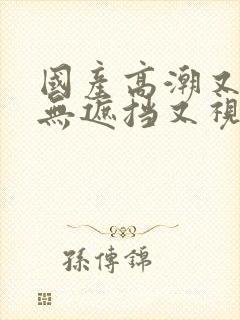 國產高潮又
無遮挡又視
孫傳錦